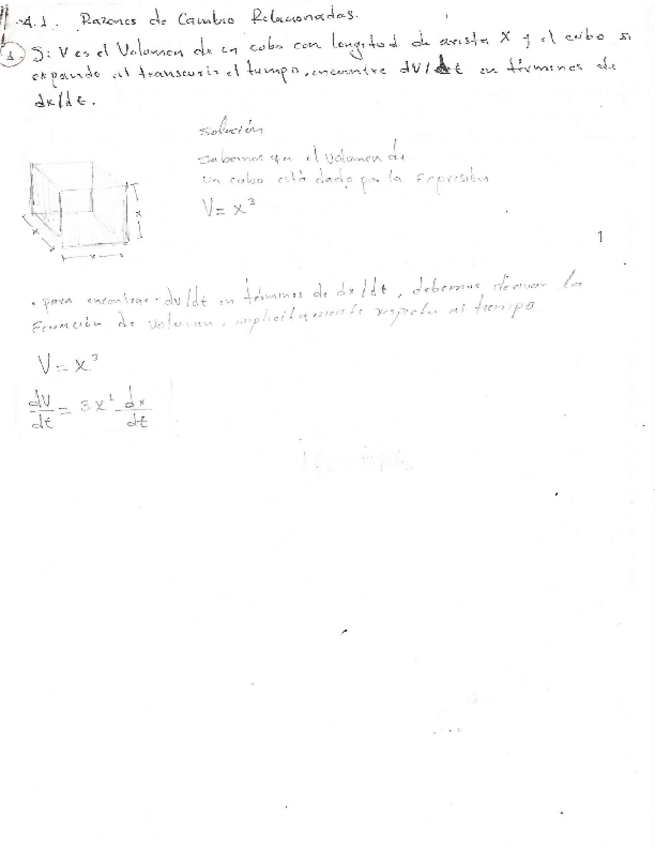 4.1. Razones de Cambio Relacionadas.
1 Si V es el Volumen de un cubo con longitud de arista X y el cubo se
expande al transcurrir el tiempo, encuentre dV/dt en términos de
dx/dt.
solución
Sabemos que el volumen de
un cubo está dado por la Expresión
V = x³
x
x
x
1
• para encontrar dv/dt en términos de dx/dt, debemos derivar la
Ecuación de volumen, implícitamente respecto al tiempo
V = x³
dV/dt = 3x² dx/dt